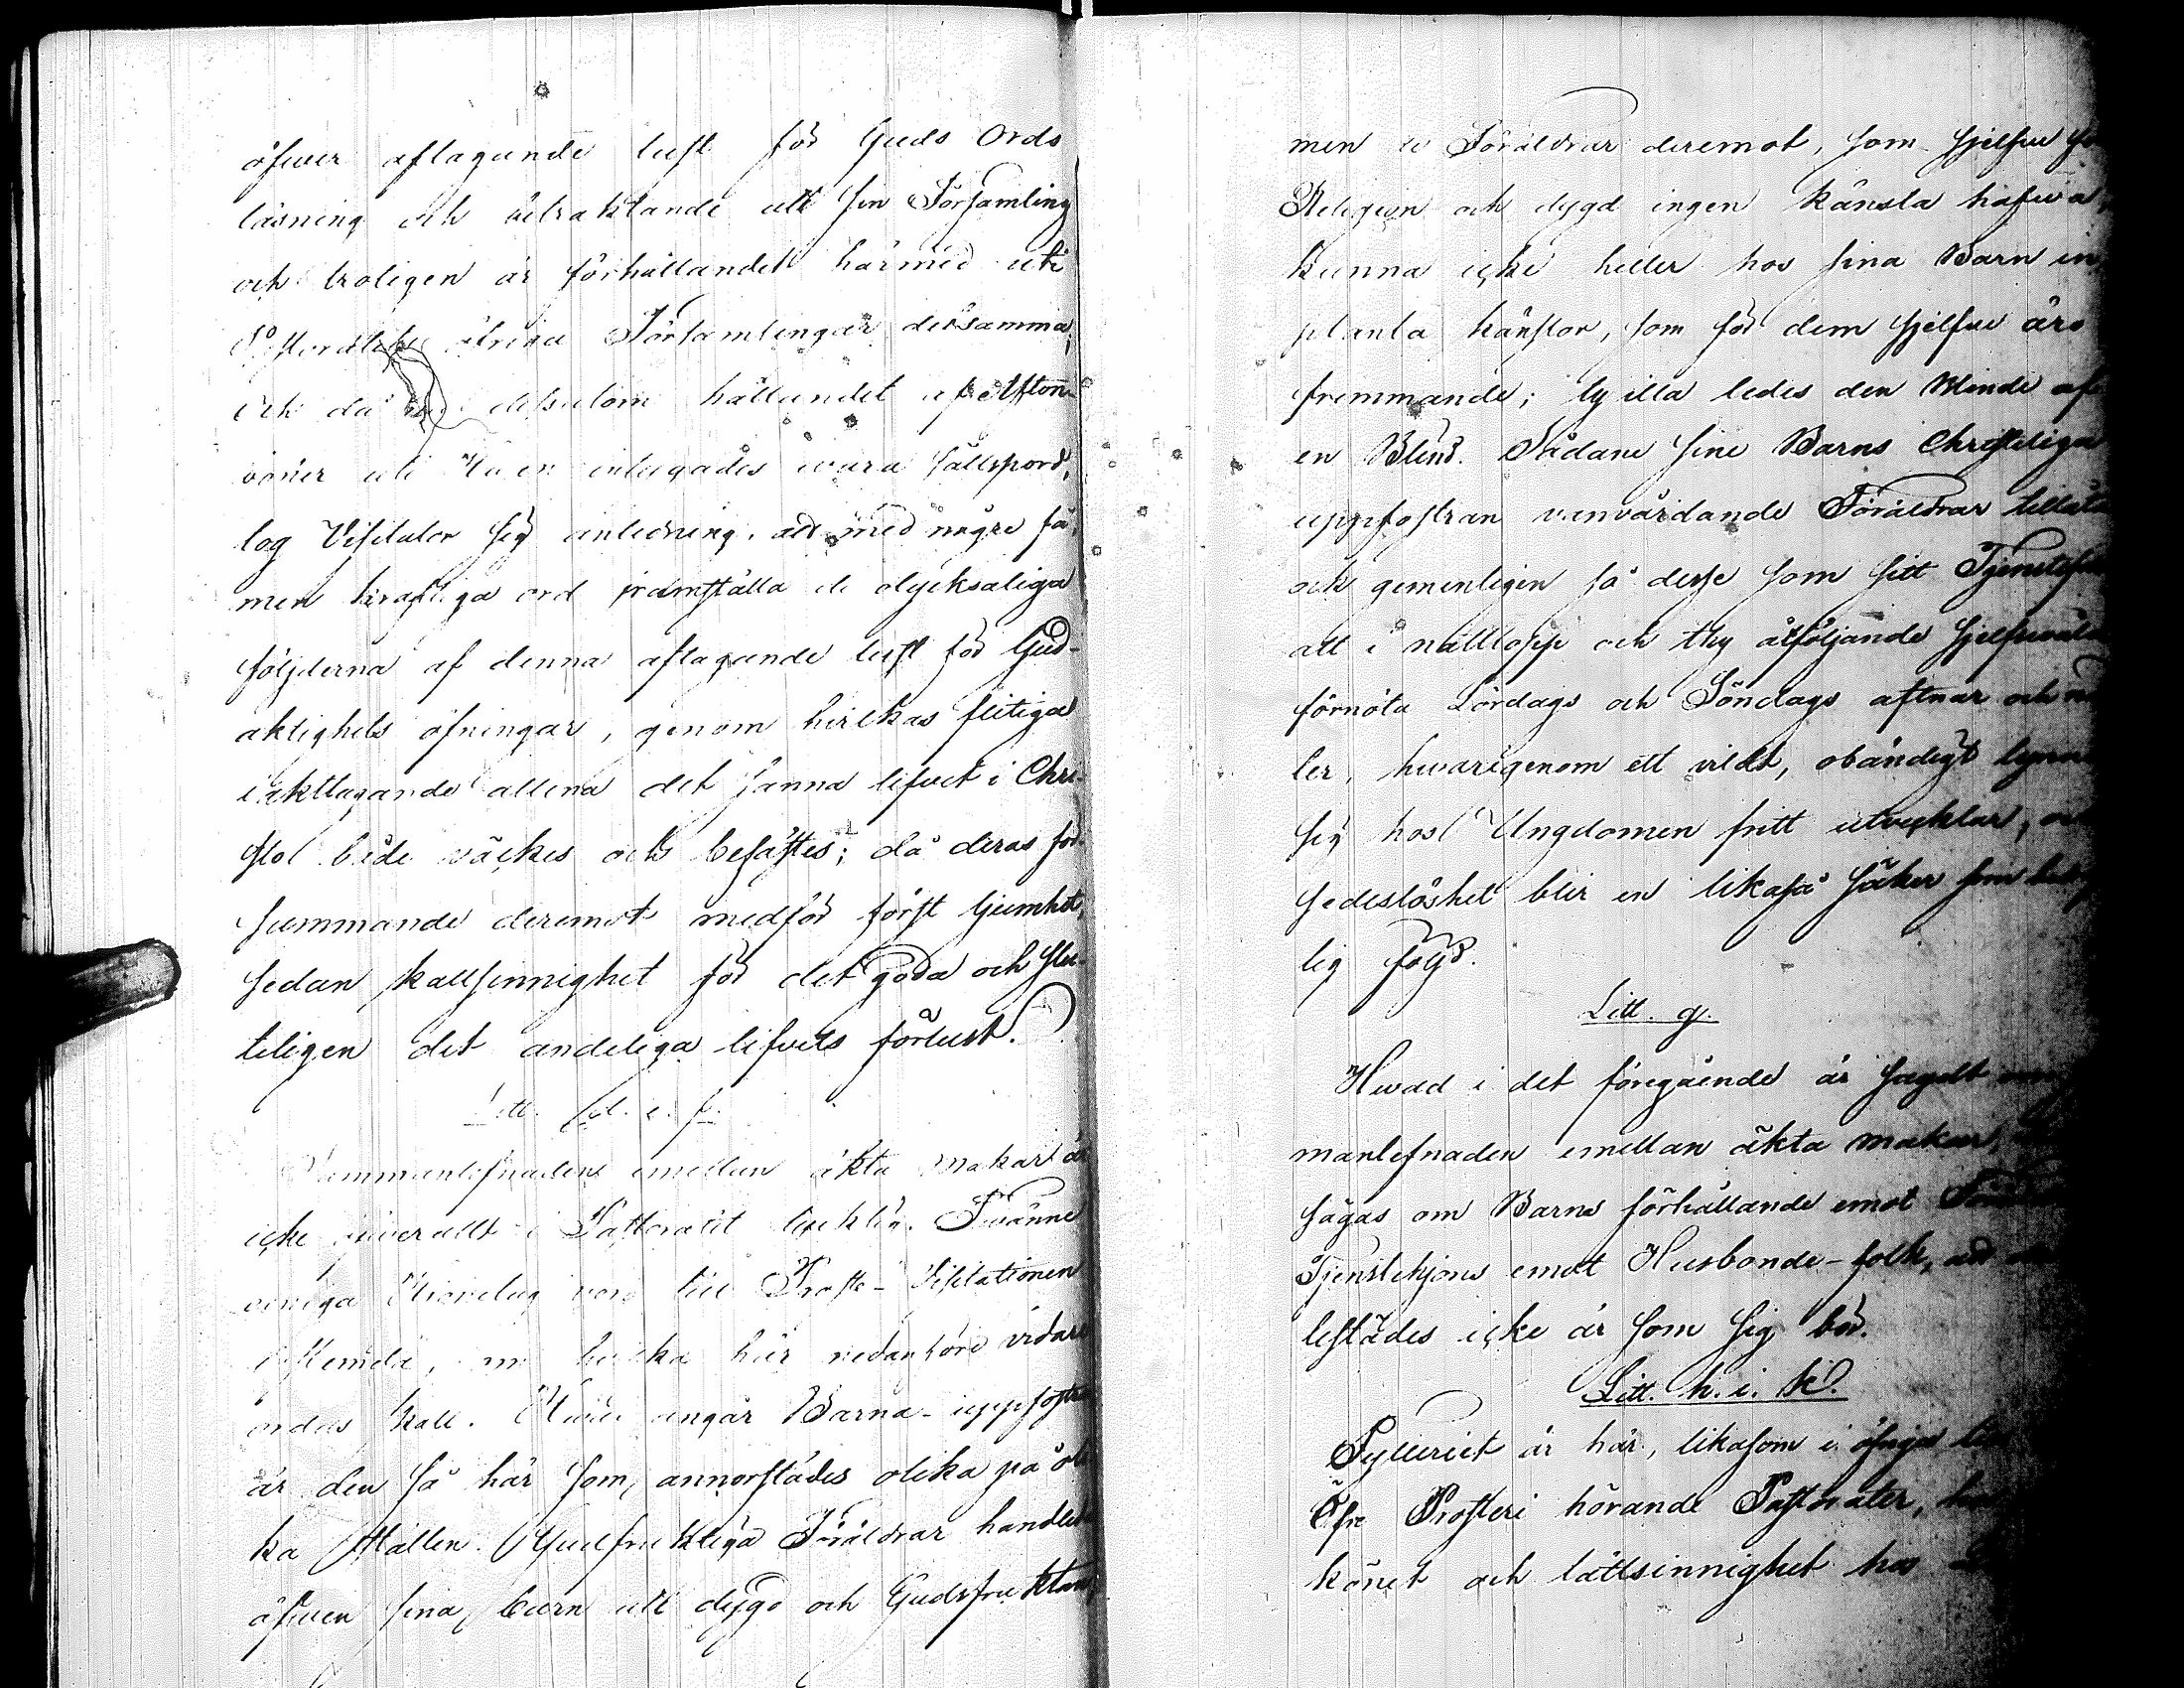 öfwer aftagande lust för Guds Ords
läsning och betraktande uti sin Församling
och troligen är förhållandet härmed uti
Pastoratets öfriga Församlingar detsamma,
och då dessutom hållandet af Afton-
böner uti Husen intygades wara sällspord,
tog Visitator sig anledning, att med några få,
men kraftiga ord framställa de olycksaliga
följderna af denna aftagande lust för Gud-
aktighets öfningar, genom hvilkas flitiga
iakttagande allena det sanna lifvet i Chri-
sto både väckes och befästes; då deras för-
summande deremot medför först ljumhet,
sedan kallsinnighet för det goda och slu-
teligen det andeliga lifvets förlust.
Litt. d. e. f.
Sammanlefnaden emellan äkta makar är
icke öfverallt i Pastoratet lycklig. Twänne
oeniga Äktenskap voro till Prosts-Visitationen
instemda, om hvilka här nedanföre vidare
ordas skall. Hvad angår Barna-uppfostran
är den så här som annorstädes olika på oli-
ka Ställen. Gudfruktiga Föräldrar handleda
äfwen sina barn till dygd och Gudsfruktan,
men de Föräldrar deremot, som sjelfve för
Religion och dygd ingen känsla hafwa,
kunna icke heller hos sina Barn in-
planta känslor, som för dem sjelfve äro
fremmande; ty illa ledes den Blinde af
en Blind. Sådane sine Barns Christeliga
uppfostran vanvårdande Föräldrar tillåta
och gemenligen så desse som sitt Tjenstefolk
att i nattlopp och thy åtföljande sjelfsvåld
förnöta Lördags och Söndags aftnar och nät-
ter, hwarigenom ett vildt, obändigt lynne
sig hos Ungdomen fritt utvecklar, och
sedeslöshet blir en likaså säker som
lig följd.
Litt. g.
Hwad i det föregående är sagdt om
manlefnaden emellan äkta makar,
sägas om Barns förhållande emot
Tjenstehjons emot Husbonde-folk, att
lestädes icke är som sig bör.
Litt. h. i. k.
Fylleriet är här, likasom i öfriga till
Öfre Prosteri hörande Pastorater,
könet och lättsinnighet hos